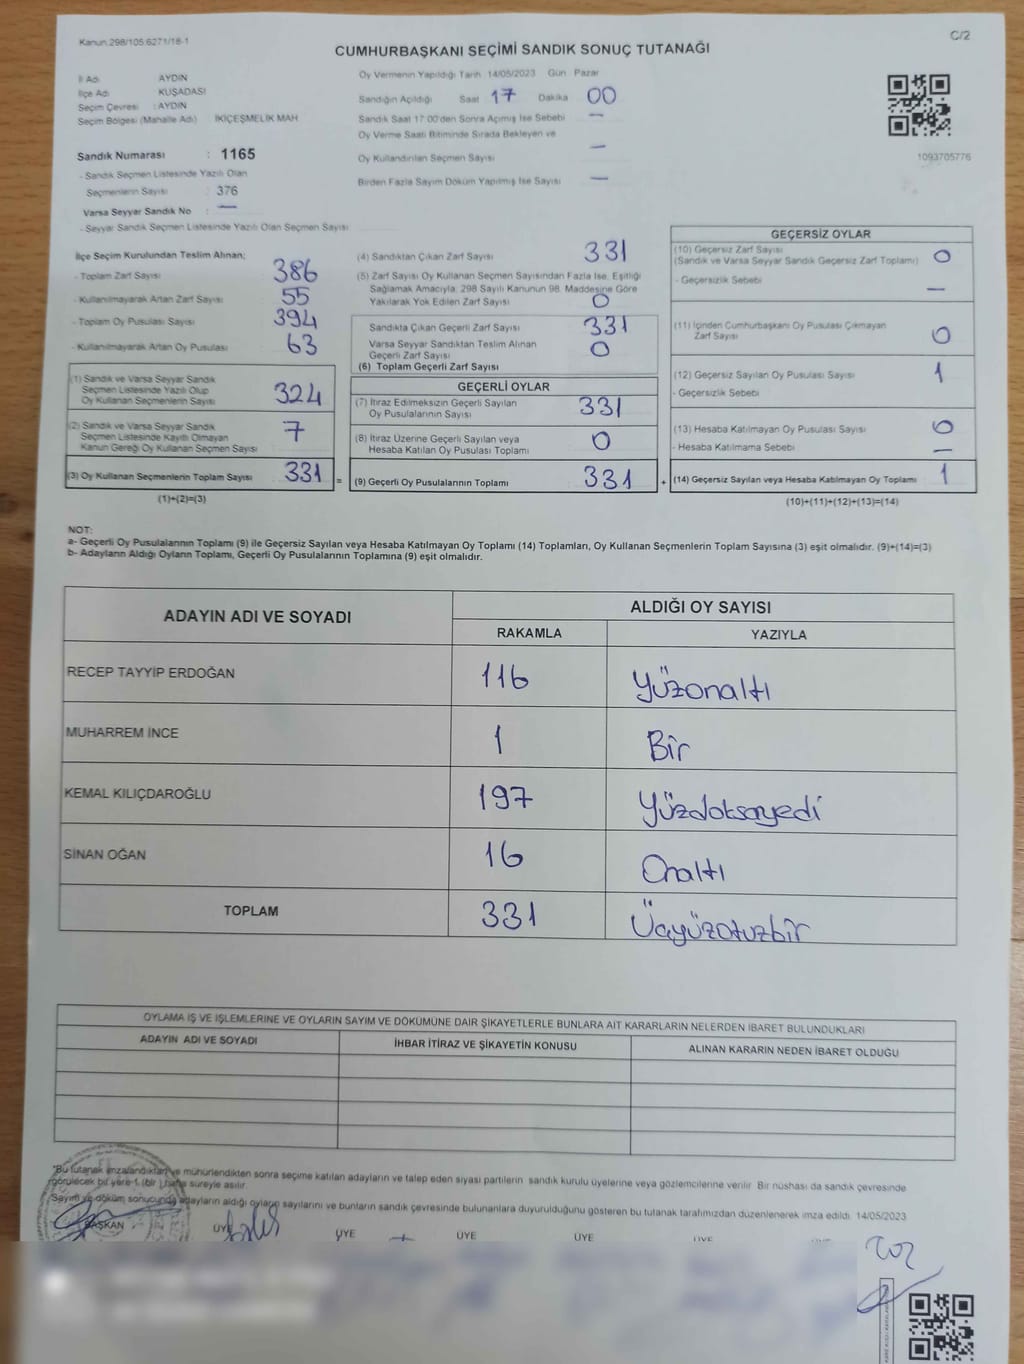 Kanun:298/105:6271/18-1
C/2
CUMHURBAŞKANI SEÇİMİ SANDIK SONUÇ TUTANAĞI
İl Adı AYDIN
İlçe Adı KUŞADASI
Seçim Çevresi : AYDIN
Seçim Bölgesi (Mahalle Adı) İKİÇEŞMELİK MAH
Sandık Numarası : 1165
- Sandık Seçmen Listesinde Yazılı Olan
Seçmenlerin Sayısı : 376
Varsa Seyyar Sandık No : —
- Seyyar Sandık Seçmen Listesinde Yazılı Olan Seçmen Sayısı
Oy Vermenin Yapıldığı Tarih 14/05/2023 Gün Pazar
Sandığın Açıldığı Saat 17 Dakika 00
Sandık Saat 17:00'den Sonra Açımış İse Sebebi —
Oy Verme Saati Bitiminde Sırada Bekleyen ve
Oy Kullandırılan Seçmen Sayısı —
Birden Fazla Sayım Döküm Yapılmış İse Sayısı —
1093705776
İlçe Seçim Kurulundan Teslim Alınan;
- Toplam Zarf Sayısı 386
- Kullanılmayarak Artan Zarf Sayısı 55
- Toplam Oy Pusulası Sayısı 394
- Kullanılmayarak Artan Oy Pusulası 63
(1) Sandık ve Varsa Seyyar Sandık
Seçmen Listesinde Yazılı Olup
Oy Kullanan Seçmenlerin Sayısı 324
(2) Sandık ve Varsa Seyyar Sandık
Seçmen Listesinde Kayıtlı Olmayan
Kanun Gereği Oy Kullanan Seçmen Sayısı 7
(3) Oy Kullanan Seçmenlerin Toplam Sayısı 331 =
(1)+(2)=(3)
(4) Sandıktan Çıkan Zarf Sayısı 331
(5) Zarf Sayısı Oy Kullanan Seçmen Sayısından Fazla İse, Eşitliği
Sağlamak Amacıyla, 298 Sayılı Kanunun 98. Maddesine Göre
Yakılarak Yok Edilen Zarf Sayısı 0
Sandıkta Çıkan Geçerli Zarf Sayısı 331
Varsa Seyyar Sandıktan Teslim Alınan
Geçerli Zarf Sayısı 0
(6) Toplam Geçerli Zarf Sayısı
GEÇERLİ OYLAR
(7) İtiraz Edilmeksizin Geçerli Sayılan
Oy Pusulalarının Sayısı 331
(8) İtiraz Üzerine Geçerli Sayılan veya
Hesaba Katılan Oy Pusulası Toplamı 0
(9) Geçerli Oy Pusulalarının Toplamı 331 +
GEÇERSİZ OYLAR
(10) Geçersiz Zarf Sayısı
(Sandık ve Varsa Seyyar Sandık Geçersiz Zarf Toplamı) 0
- Geçersizlik Sebebi —
(11) İçinden Cumhurbaşkanı Oy Pusulası Çıkmayan
Zarf Sayısı 0
(12) Geçersiz Sayılan Oy Pusulası Sayısı 1
- Geçersizlik Sebebi
(13) Hesaba Katılmayan Oy Pusulası Sayısı 0
- Hesaba Katılmama Sebebi —
(14) Geçersiz Sayılan veya Hesaba Katılmayan Oy Toplamı 1
(10)+(11)+(12)+(13)=(14)
NOT:
a- Geçerli Oy Pusulalarının Toplamı (9) ile Geçersiz Sayılan veya Hesaba Katılmayan Oy Toplamı (14) Toplamları, Oy Kullanan Seçmenlerin Toplam Sayısına (3) eşit olmalıdır. (9)+(14)=(3)
b- Adayların Aldığı Oyların Toplamı, Geçerli Oy Pusulalarının Toplamına (9) eşit olmalıdır.
ADAYIN ADI VE SOYADI ALDIĞI OY SAYISI
RAKAMLA YAZIYLA
RECEP TAYYİP ERDOĞAN 116 Yüzonaltı
MUHARREM İNCE 1 Bir
KEMAL KILIÇDAROĞLU 197 Yüzdoksayedi
SİNAN OĞAN 16 Onaltı
TOPLAM 331 Üçyüzotuzbir
OYLAMA İŞ VE İŞLEMLERİNE VE OYLARIN SAYIM VE DÖKÜMÜNE DAİR ŞİKAYETLERLE BUNLARA AİT KARARLARIN NELERDEN İBARET BULUNDUKLARI
ADAYIN ADI VE SOYADI İHBAR İTİRAZ VE ŞİKAYETİN KONUSU ALINAN KARARIN NEDEN İBARET OLDUĞU
*Bu tutanak imzalandıktan ve mühürlendikten sonra seçime katılan adayların ve talep eden siyasi partilerin sandık kurulu üyelerine veya gözlemcilerine verilir. Bir nüshası da sandık çevresinde
görülecek bir yere 1 (bir) hafta süreyle asılır.
Sayım ve döküm sonucunda adayların aldığı oyların sayılarını ve bunların sandık çevresinde bulunanlara duyurulduğunu gösteren bu tutanak tarafımızdan düzenlenerek imza edildi. 14/05/2023
BAŞKAN ÜYE ÜYE ÜYE ÜYE ÜYE